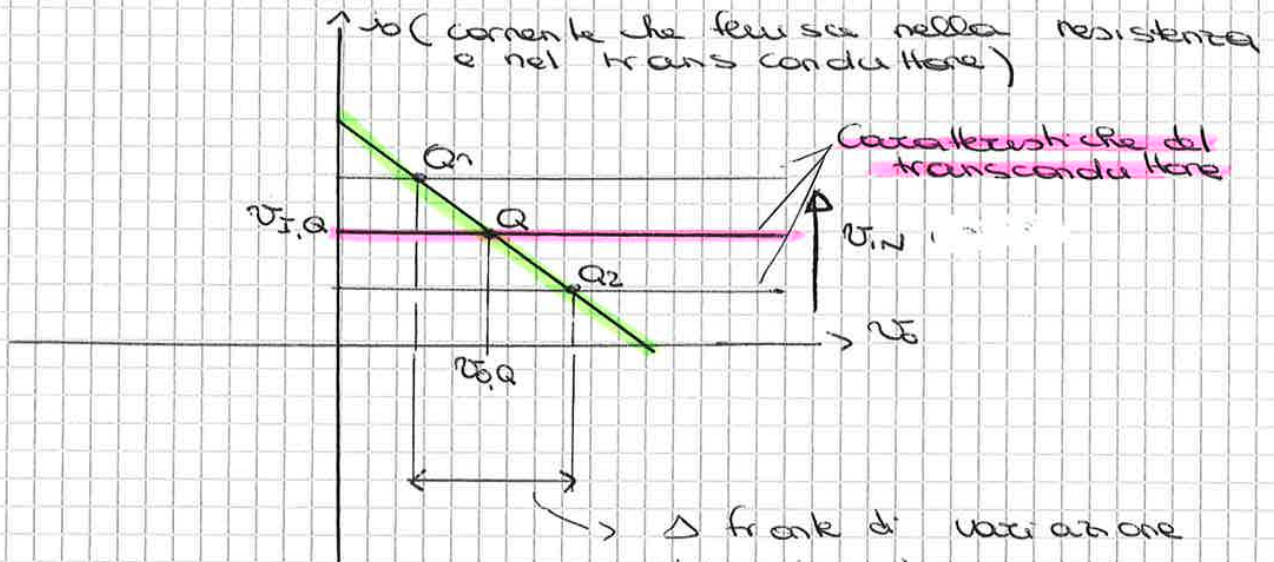 io (corrente che fluisce nella resistenza
e nel transconduttore)
Caratteristiche del
transconduttore
Q1
vI,Q
Q
vIN
Q2
vo
vo,Q
Δ fronte di variazione